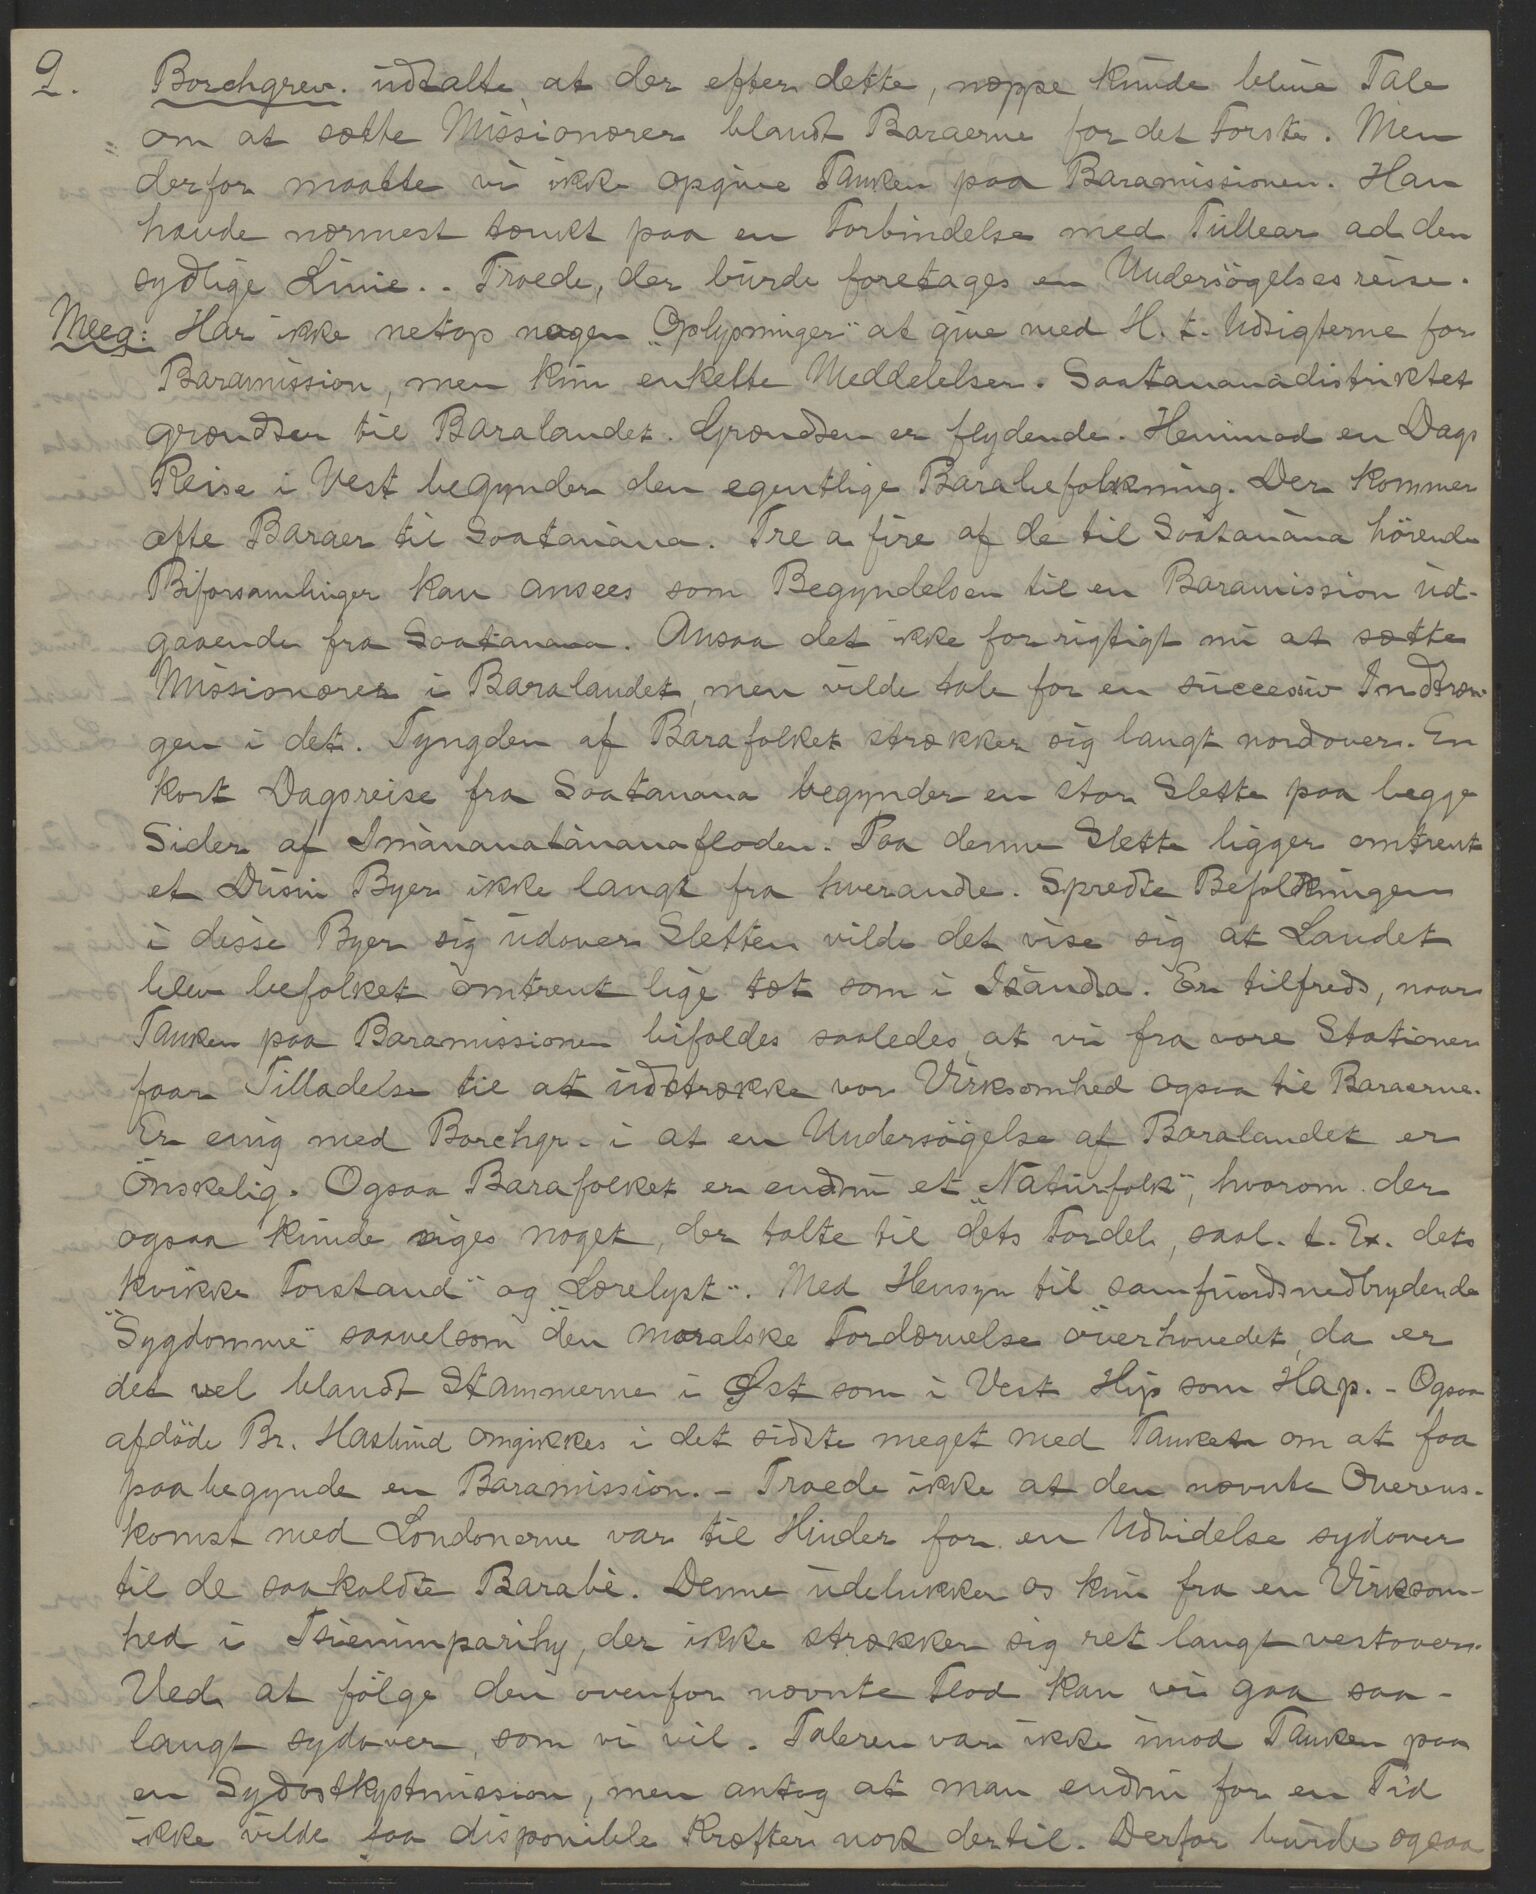 9. Borchgrev. udtalte, at der efter dette, neppe kunde blive Tale
om at sætte Missionærer blandt Baraerne for det Første. Men
derfor maatte vi ikke opgive Tanken paa Baramissionen. Han
havde nærmest tænkt paa en Forbindelse med Tullear ad den
sydlige Linie.. Troede, der burde foretages en Undersögelsesreise.
Meeg: Har ikke netop nogen "Oplysninger" at give med H. t. Udsigterne for
Baramission, men kun enkelte Meddelelser. Soatananadistriktet
grændser til Baralandet. Grændsen er flydende. Henimod en Dags
Reise i Vest begynder den egentlige Barabefolkning. Der kommer
ofte Baraer til Soatanàna. Tre a fire af de til Soatanàna hörende
Biforsamlinger kan ansees som Begyndelsen til en Baramission ud-
gaaende fra Soatanana. Ansaa det ikke for rigtigt nu at sætte
Missionærer i Baralandet, men vilde tale for en successiv Indtræn
gen i det. Tyngden af Barafolket strækker sig langt nordover. En
kort Dagsreise fra Soatanana begynder en stor Slette paa begge
Sider af Imànanatànanafloden. Paa denne Slette ligger omtrent
et Dusin Byer ikke langt fra hverandre. Spredte Befolkningen
i disse Byer sig udover Sletten vilde det vise sig at Landet
blev befolket omtrent lige tæt som i Isàndra. Er tilfreds, naar
Tanken paa Baramissionen bifaldes saaledes, at vi fra vore Stationer
faar Tilladelse til at udstrække vor Virksomhed ogsaa til Baraerne.
Er enig med Borchgr. i at en Undersögelse af Baralandet er
Önskelig. Ogsaa Barafolket er endnu et "Naturfolk", hvorom der
ogsaa kunde siges noget, der talte til dets Fordel, saal. t. Ex. dets
kvikke Forstand" og Lærelyst". Med Hensyn til samfundsnedbrydende
"Sygdomme" saavelsom den moralske Fordærvelse overhovedet, da er
det vel blandt Stammerne i Øst som i Vest Hip som Hap. - Ogsaa
afdöde Br. Haslund omgikkes i det sidste meget med Tanken om at faa
paabegynde en Baramission. - Troede ikke at den nævnte Overens-
komst med Londonerne var til Hinder for en Udvidelse sydover
til de saakaldte Barabè. Denne udelukker os kun fra en Virksom-
hed i Tsienimparihy, der ikke strækker sig ret langt vestover.
Ved at følge den ovenfor nævnte Flod kan vi gaa saa-
langt sydover, som vi vil. Taleren var ikke imod Tanken paa
en Sydostkystmission, men antog at man endnu for en Tid
ikke vilde faa disponible Kræfter nok dertil. Derfor burde ogsaa